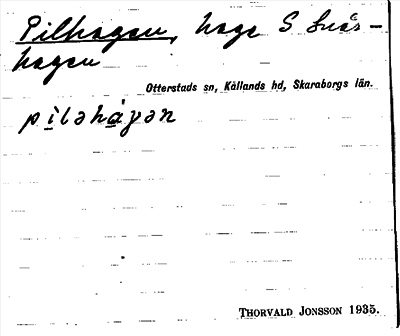 Pilhagen, hage S Snås-
hagen
Otterstads sn, Kållands hd, Skaraborgs län.
pìləhàγən
THORVALD JONSSON 1935.